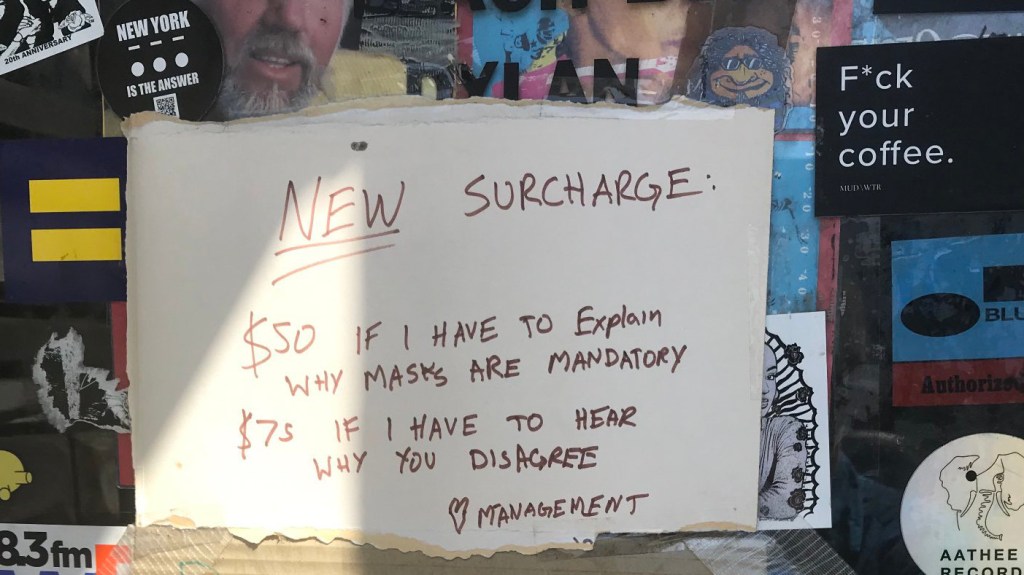 20th ANNIVERSARY
NEW YORK
IS THE ANSWER
YLAN
F*ck
your
coffee.
MUD\WTR
NEW SURCHARGE:
$50 IF I HAVE TO Explain
WHY MASKS ARE MANDATORY
$75 IF I HAVE TO HEAR
WHY YOU DISAGREE
♡ MANAGEMENT
BLU
Authorize
8.3fm
AATHEE
RECORD